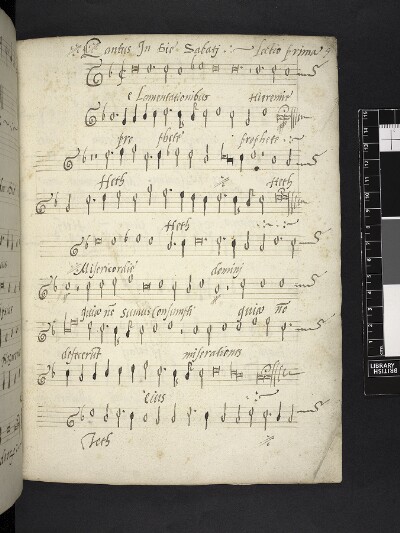 Cantus In die Sabati lectio prima
Lamentationibus Hieremie
pro phete prophete
Heth Heth
Heth
Misericordie domini
quia nõ sumus Consumpti quia nõ
defecerũt miserationes
eius
Teth
BRITISH
LIBRARY